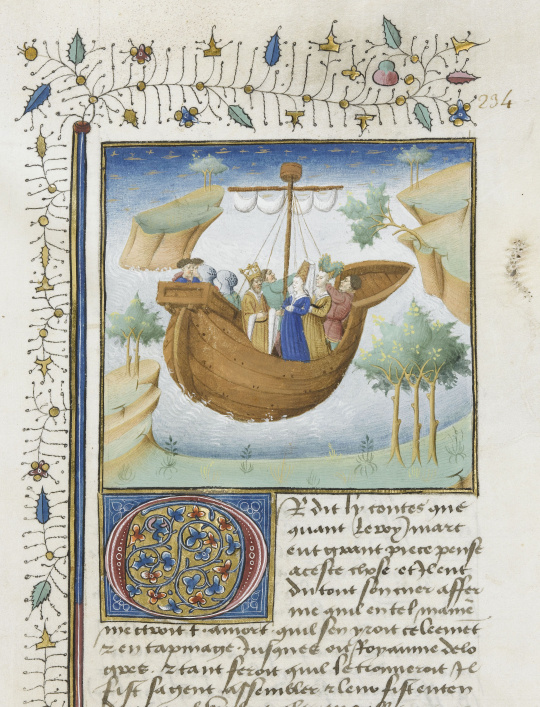 234
Or dit ly contes que
quant le roy marc
eut grant piece pense
a ceste chose et Il eut
du tout son cuer affer
me quil en tel manie
mectroit t. a mort quil sen yroit celeemēt
⁊ en tapinage Jusques ou Royaume de lo
gres. ⁊ tant feroit quil le trouveroit Il
fist sa gent assembler ⁊ leur fist enten